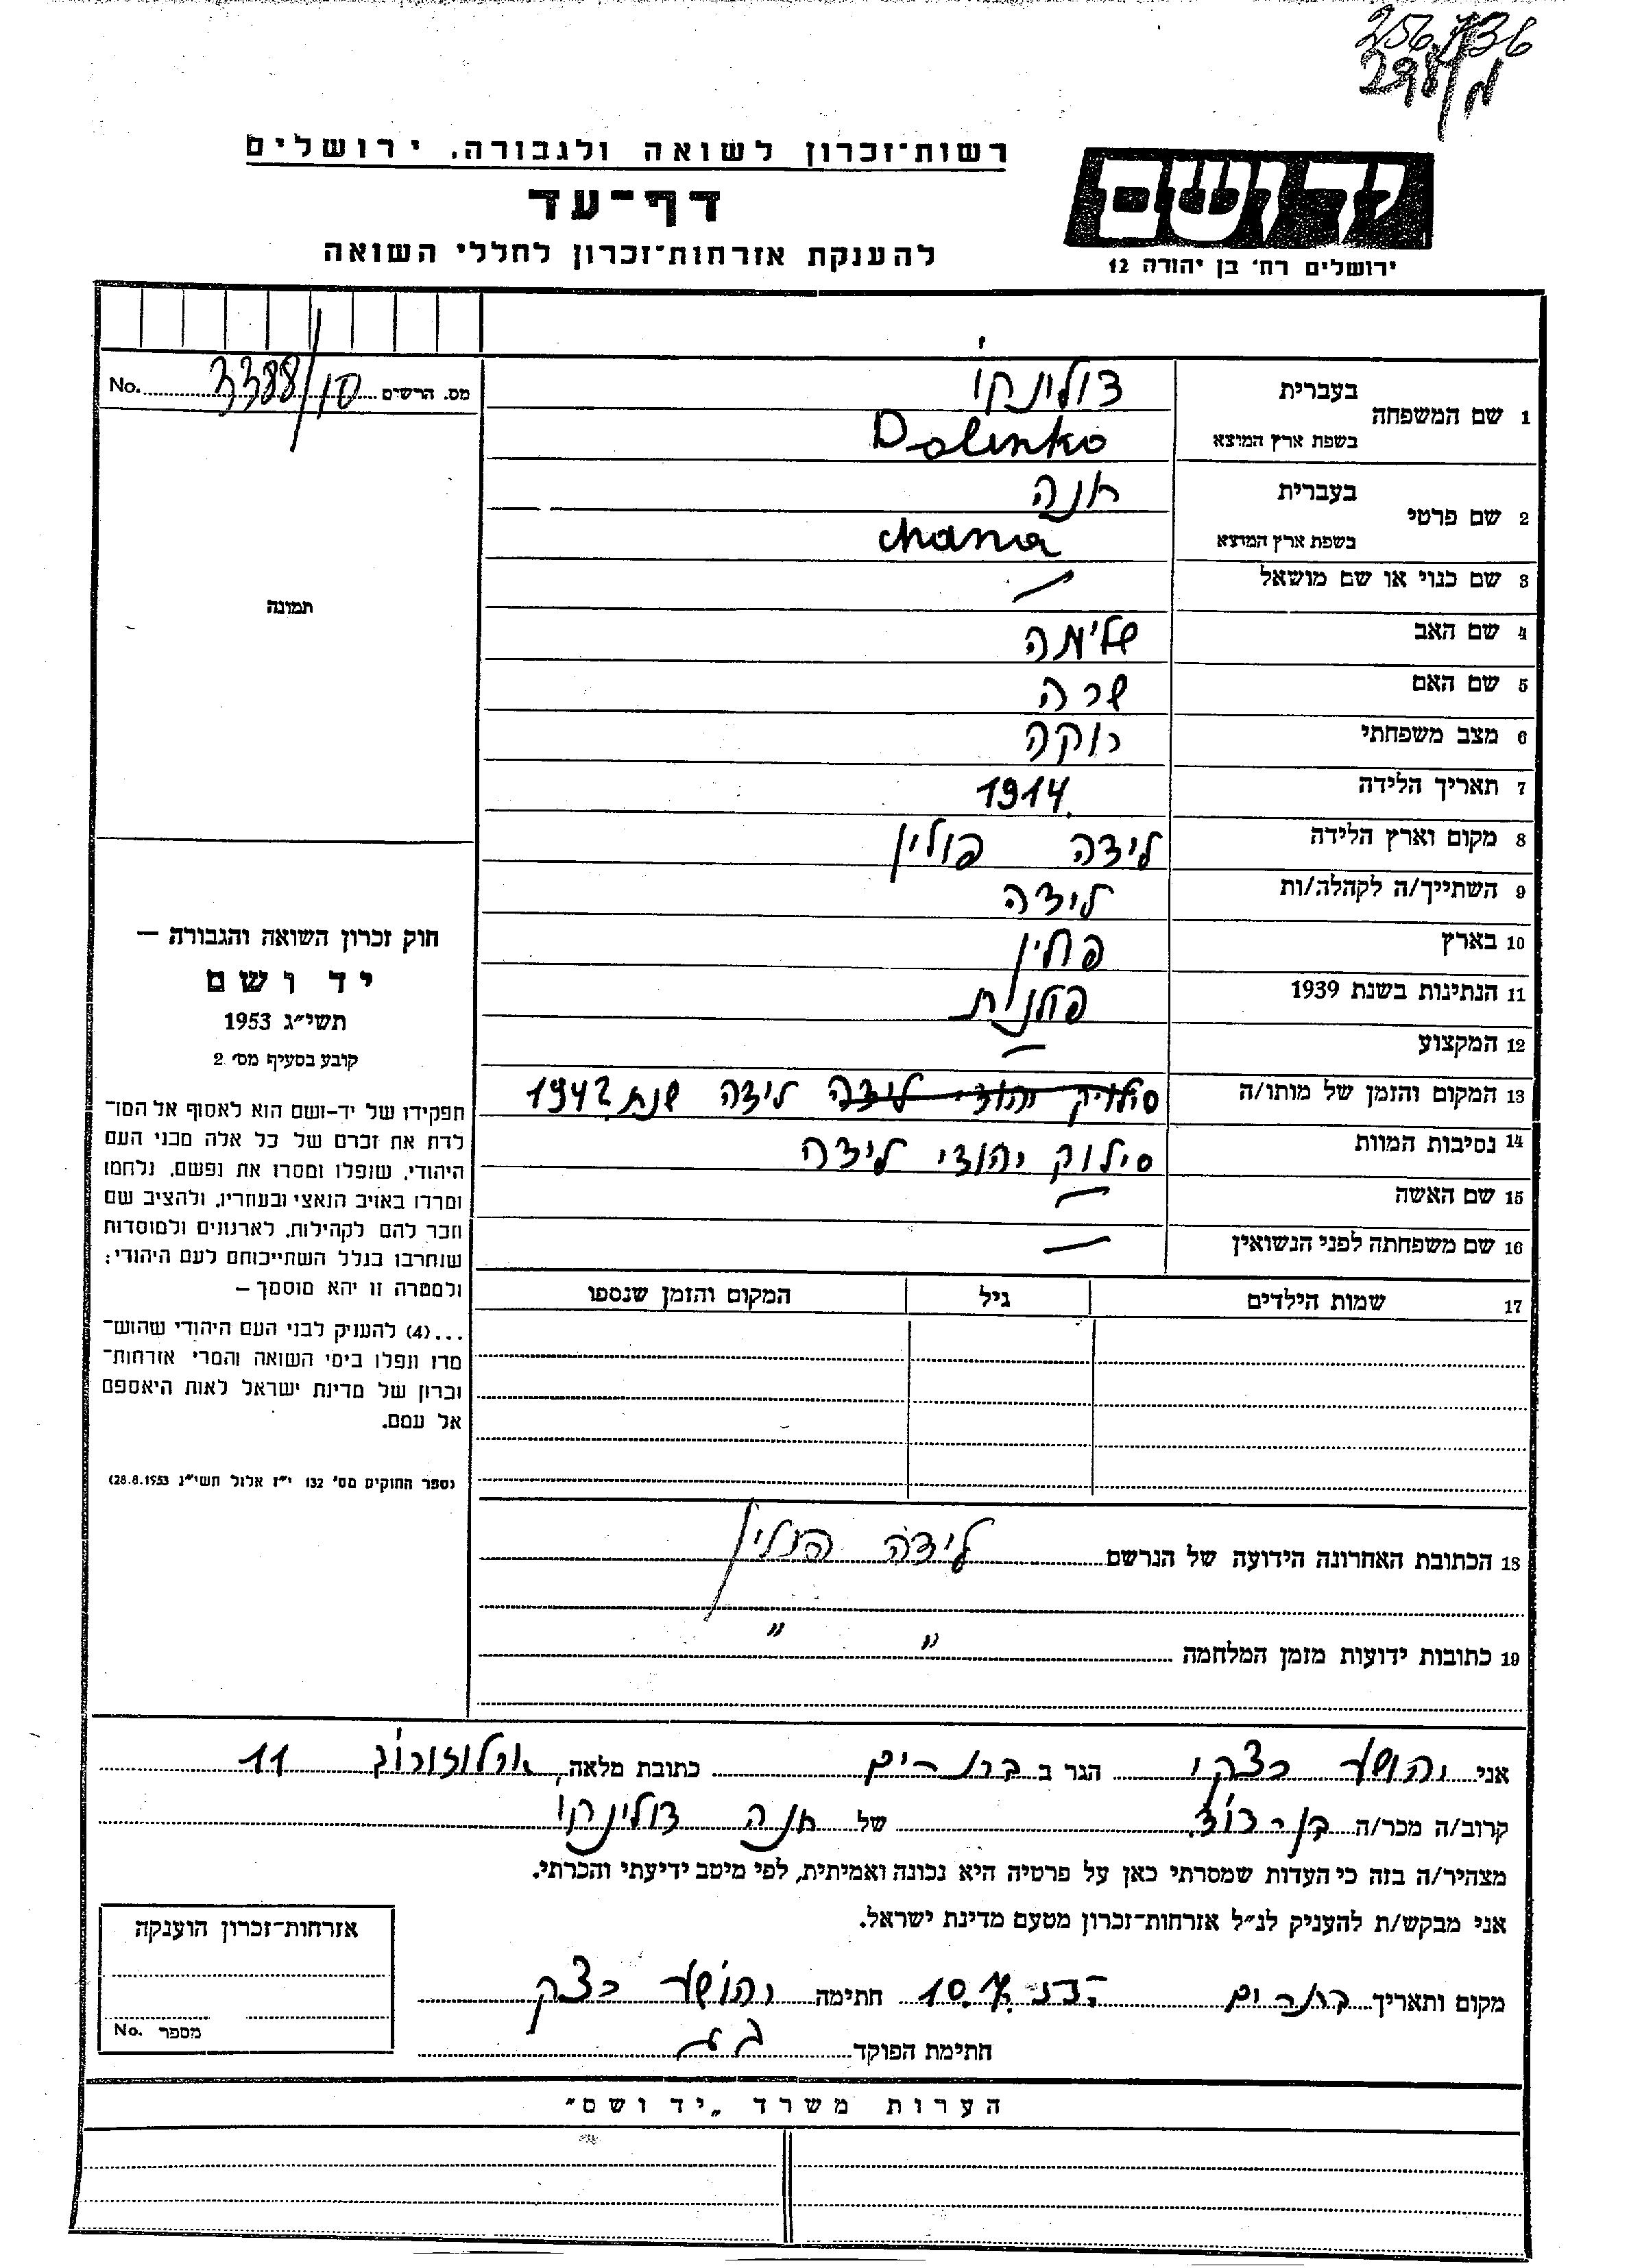 256736
רשות־זכרון לשואה ולגבורה. ירושלים
דף־עד
להענקת אזרחות־זכרון לחללי השואה
יד ושם
ירושלים רח׳ בן יהודה 12
מס. הרשים 3388/סו No.
תמונה
חוק זכרון השואה והגבורה —
יד ושם
תשי״ג 1953
קובע בסעיף מס׳ 2
תפקידו של יד-ושם הוא לאסוף אל המו־
לדת את זכרם של כל אלה מבני העם
היהודי, שנפלו ומסרו את נפשם, נלחמו
ומרדו באויב הנאצי ובעוזריו, ולהציב שם
וזכר להם לקהילות, לארגונים ולמוסדות
שנחרבו בגלל השתייכותם לעם היהודי;
ולמטרה זו יהא מוסמך —
...(4) להעניק לבני העם היהודי שהוש־
מדו ונפלו בימי השואה והמרי אזרחות־
זכרון של מדינת ישראל לאות היאספם
אל עמם.
(ספר החוקים מס׳ 132 י״ז אלול תשי״ג 28.8.1953)
1 שם המשפחה בעברית דולינקו
בשפת ארץ המוצא Dolinko
2 שם פרטי בעברית חנה
בשפת ארץ המוצא chana
3 שם כנוי או שם מושאל —
4 שם האב שלימה
5 שם האם שרה
6 מצב משפחתי רוקה
7 תאריך הלידה 1914
8 מקום וארץ הלידה לידה פולין
9 השתייך/ה לקהלה/ות לידה
10 בארץ פולין
11 הנתינות בשנת 1939 פולנית
12 המקצוע —
13 המקום והזמן של מותו/ה סילוק יהודי לידה לידה שנת 1942
14 נסיבות המוות סילוק יהודי לידה
15 שם האשה —
16 שם משפחתה לפני הנשואין —
17 שמות הילדים גיל המקום והזמן שנספו
18 הכתובת האחרונה הידועה של הנרשם לידה פולין
19 כתובות ידועות מזמן המלחמה " "
אני יהושע רצקי הגר ב בת ים כתובת מלאה, ארלוזורוב 11
קרוב/ה מכר/ה בן דוד של חנה דולינקו
מצהיר/ה בזה כי העדות שמסרתי כאן על פרטיה היא נכונה ואמיתית, לפי מיטב ידיעתי והכרתי.
אני מבקש/ת להעניק לנ״ל אזרחות־זכרון מטעם מדינת ישראל.
מקום ותאריך בת ים חתימה יהושע רצקי
חתימת הפוקד
אזרחות־זכרון הוענקה
מספר No.
הערות משרד „יד ושם״